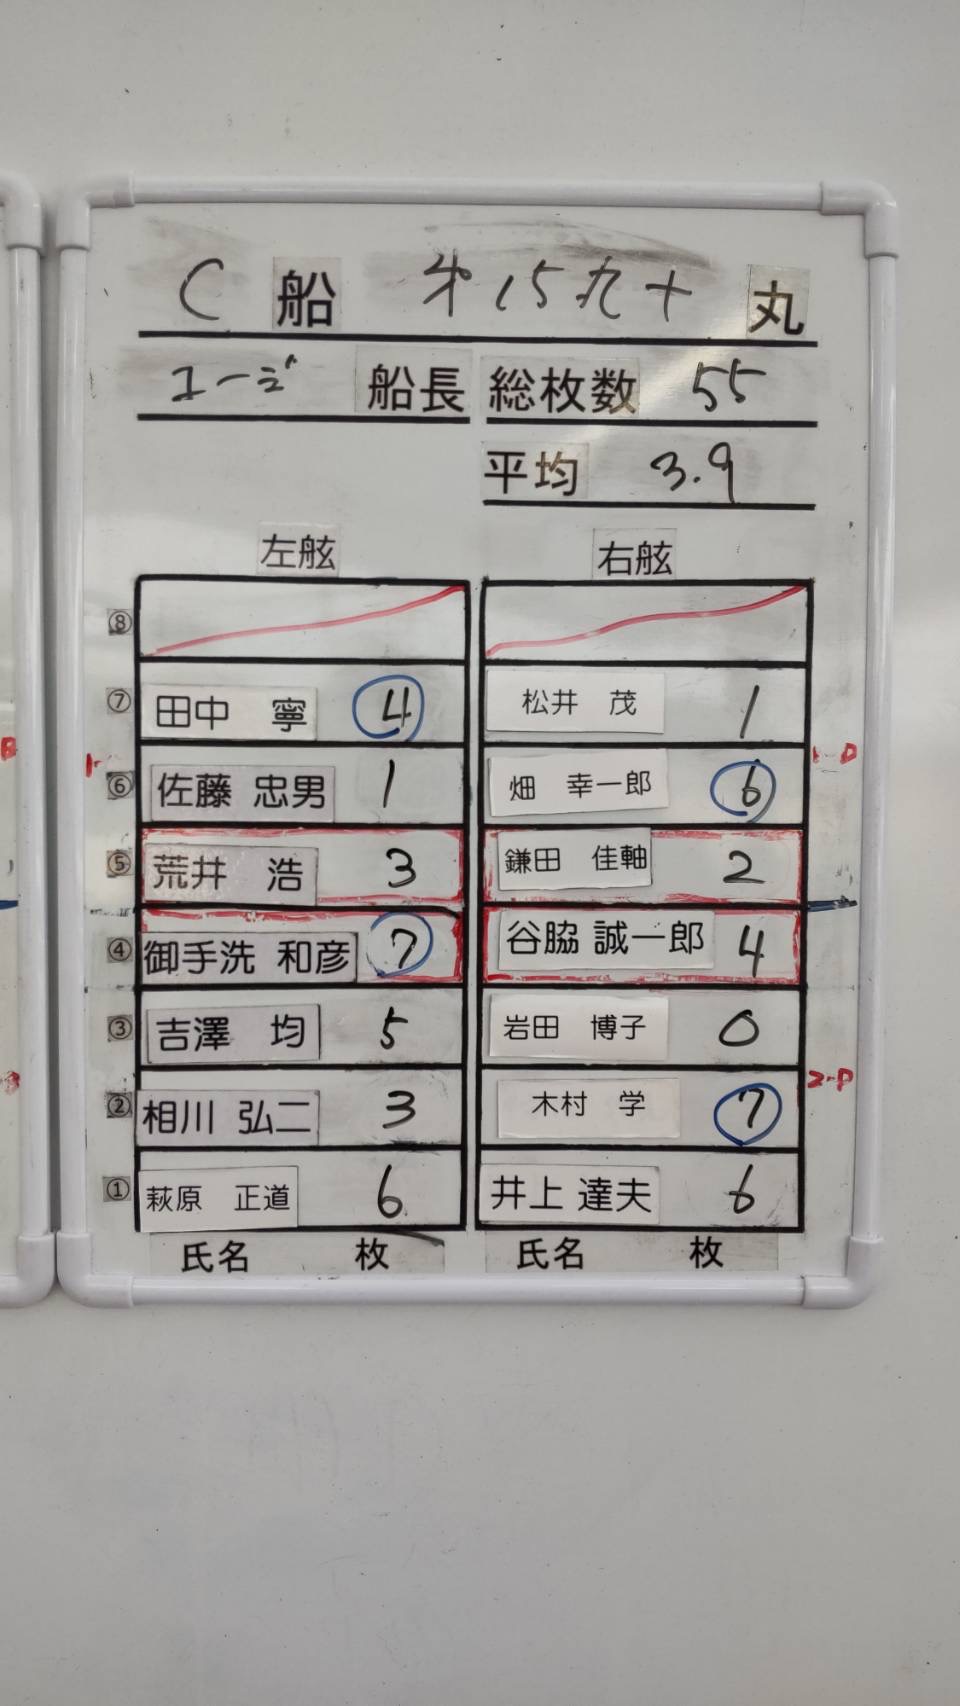 C 船 才15九十 丸
ユージ 船長 総枚数 55
平均 3.9
左舷 右舷
⑧
⑦ 田中 寧 4 松井 茂 1
1-
1-P
⑥ 佐藤 忠男 1 畑 幸一郎 6
⑤ 荒井 浩 3 鎌田 佳軸 2
④ 御手洗 和彦 7 谷脇 誠一郎 4
③ 吉澤 均 5 岩田 博子 0
2-P
② 相川 弘二 3 木村 学 7
① 萩原 正道 6 井上 達夫 6
氏名 枚 氏名 枚